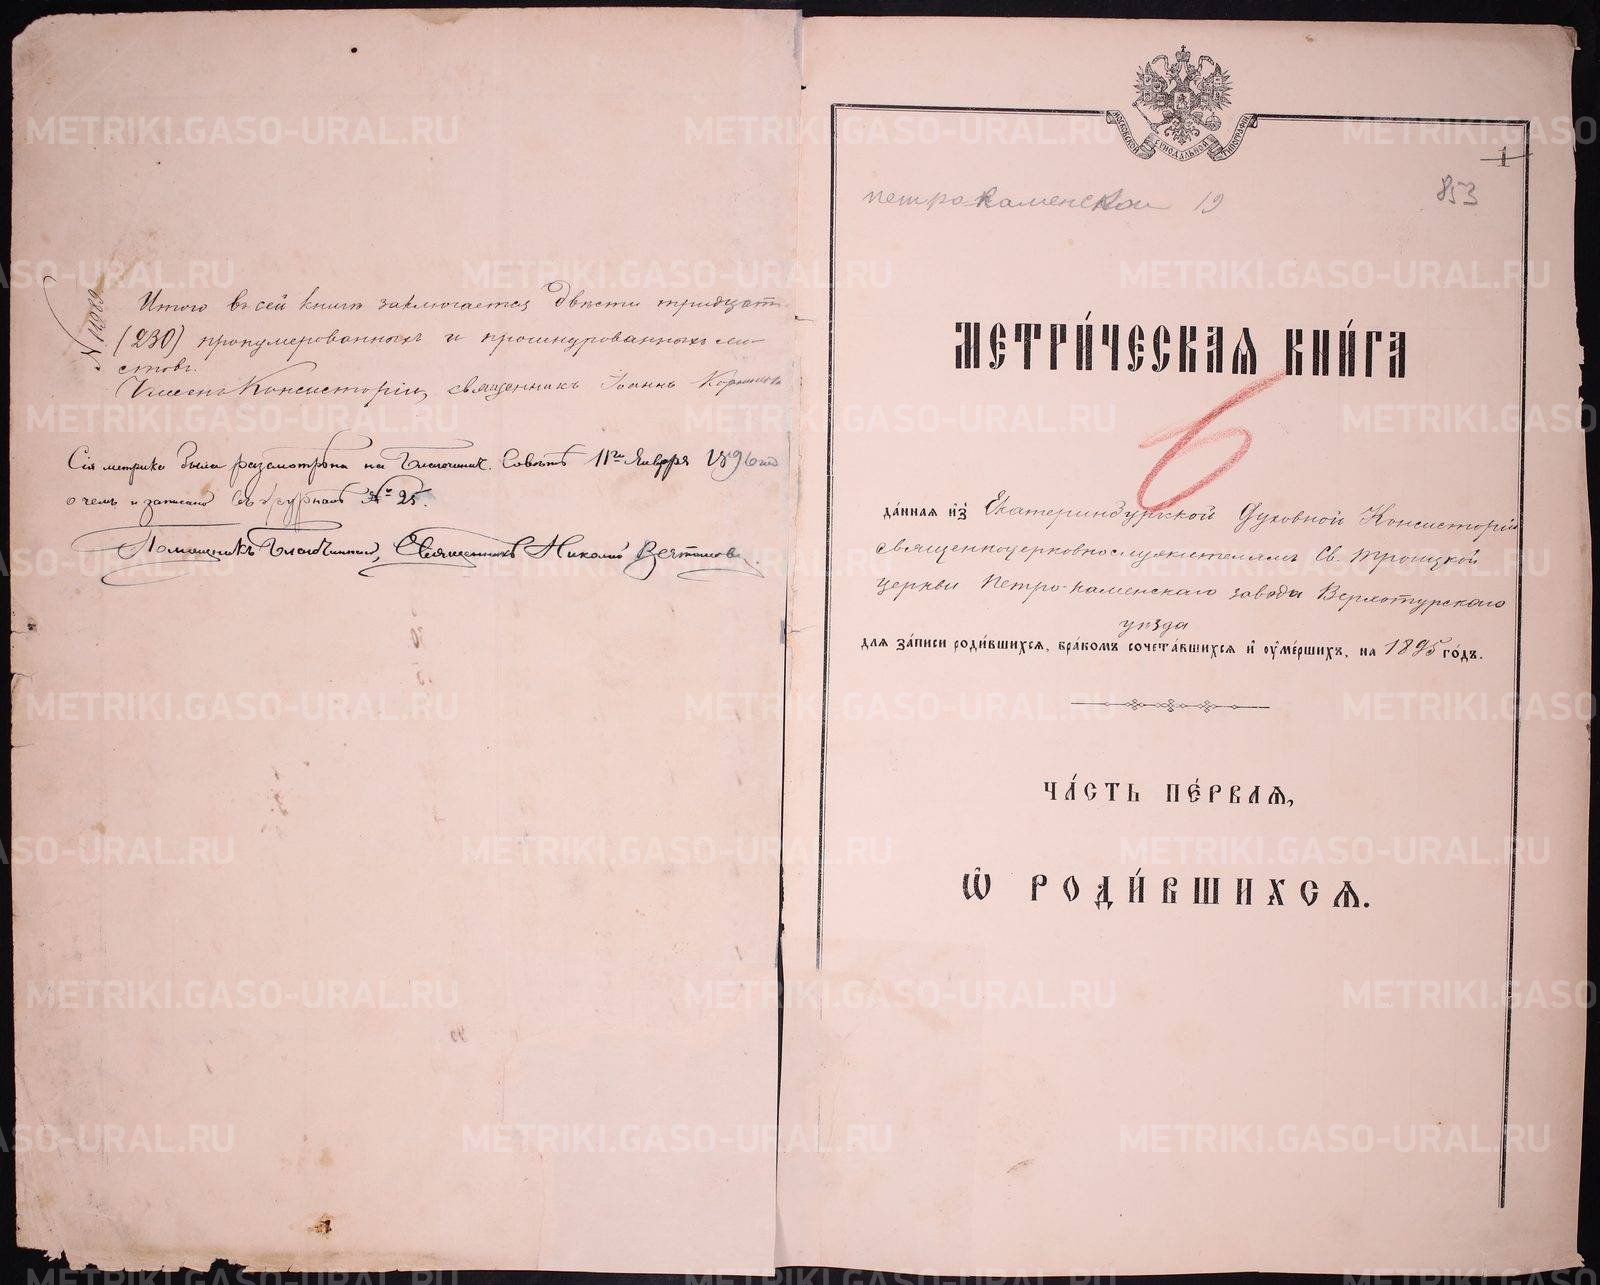 № 11989
Итого въ сей книгѣ заключается двѣсти тридцать
(230) пронумерованныхъ и прошнурованныхъ ли-
стовъ.
Членъ Консисторіи, священникъ Іоаннъ
Сія метрика была разсмотрѣна на Благочин. Совѣтѣ 11го Января 1896 год
о чемъ и записано въ журналѣ № 25.
Помощникъ Благочиннаго, Священникъ Николай
МОСКОВСКОЙ СѴНОДАЛЬНОЙ ТИПОГРАФІИ
1
петрокаменской 19 853
МЕТРИ́ЧЕСКАЯ КНИ́ГА
6
да́нная и҆з̾ Екатеринбургской Духовной Консисторіи
священноцерковнослужителямъ Св. Троицкой
церкви Петро-каменскаго завода Верхотурскаго
уѣзда
для за́писи роди́вшихся, бра́комъ сочета́вшихся и҆ оу҆ме́ршихъ, на 1895 го́дъ.
ЧА́СТЬ ПЕ́РВАЯ,
Ѡ҆ РОДИ́ВШИХСЯ.
METRIKI.GASO-URAL.RU